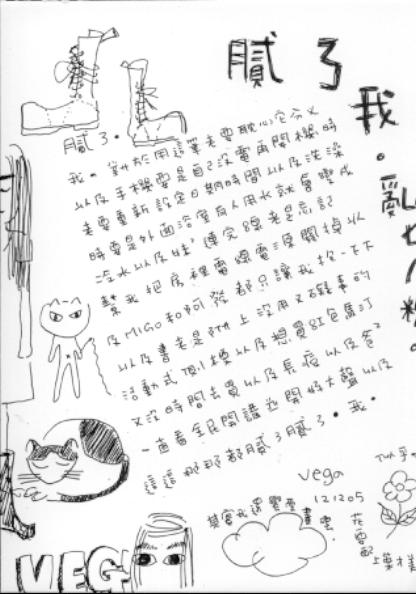 膩了
我。
亂七八糟。
膩了。
我。對於用這筆老要耽心它分叉
以及手機要是自己沒電再開機時
老要重新設定日期時間以及洗澡
時要是外面浴度有人用水就會變成
冷水以及妹連完線老是忘記
幫我把房裡電源電源關掉以
及MIGO和阿發都只讓我抱一下下
以及書老是附上沒用又礙事的
活動式頂樓以及想買紅色馬汀
又沒時間去買以及長痘以及爸
一直看全民開講迎開好大聲以及
這這那那都膩了膩了。我。
vega
121205
其實我還蠻愛畫雲。
花要配
上葉才美
VEG